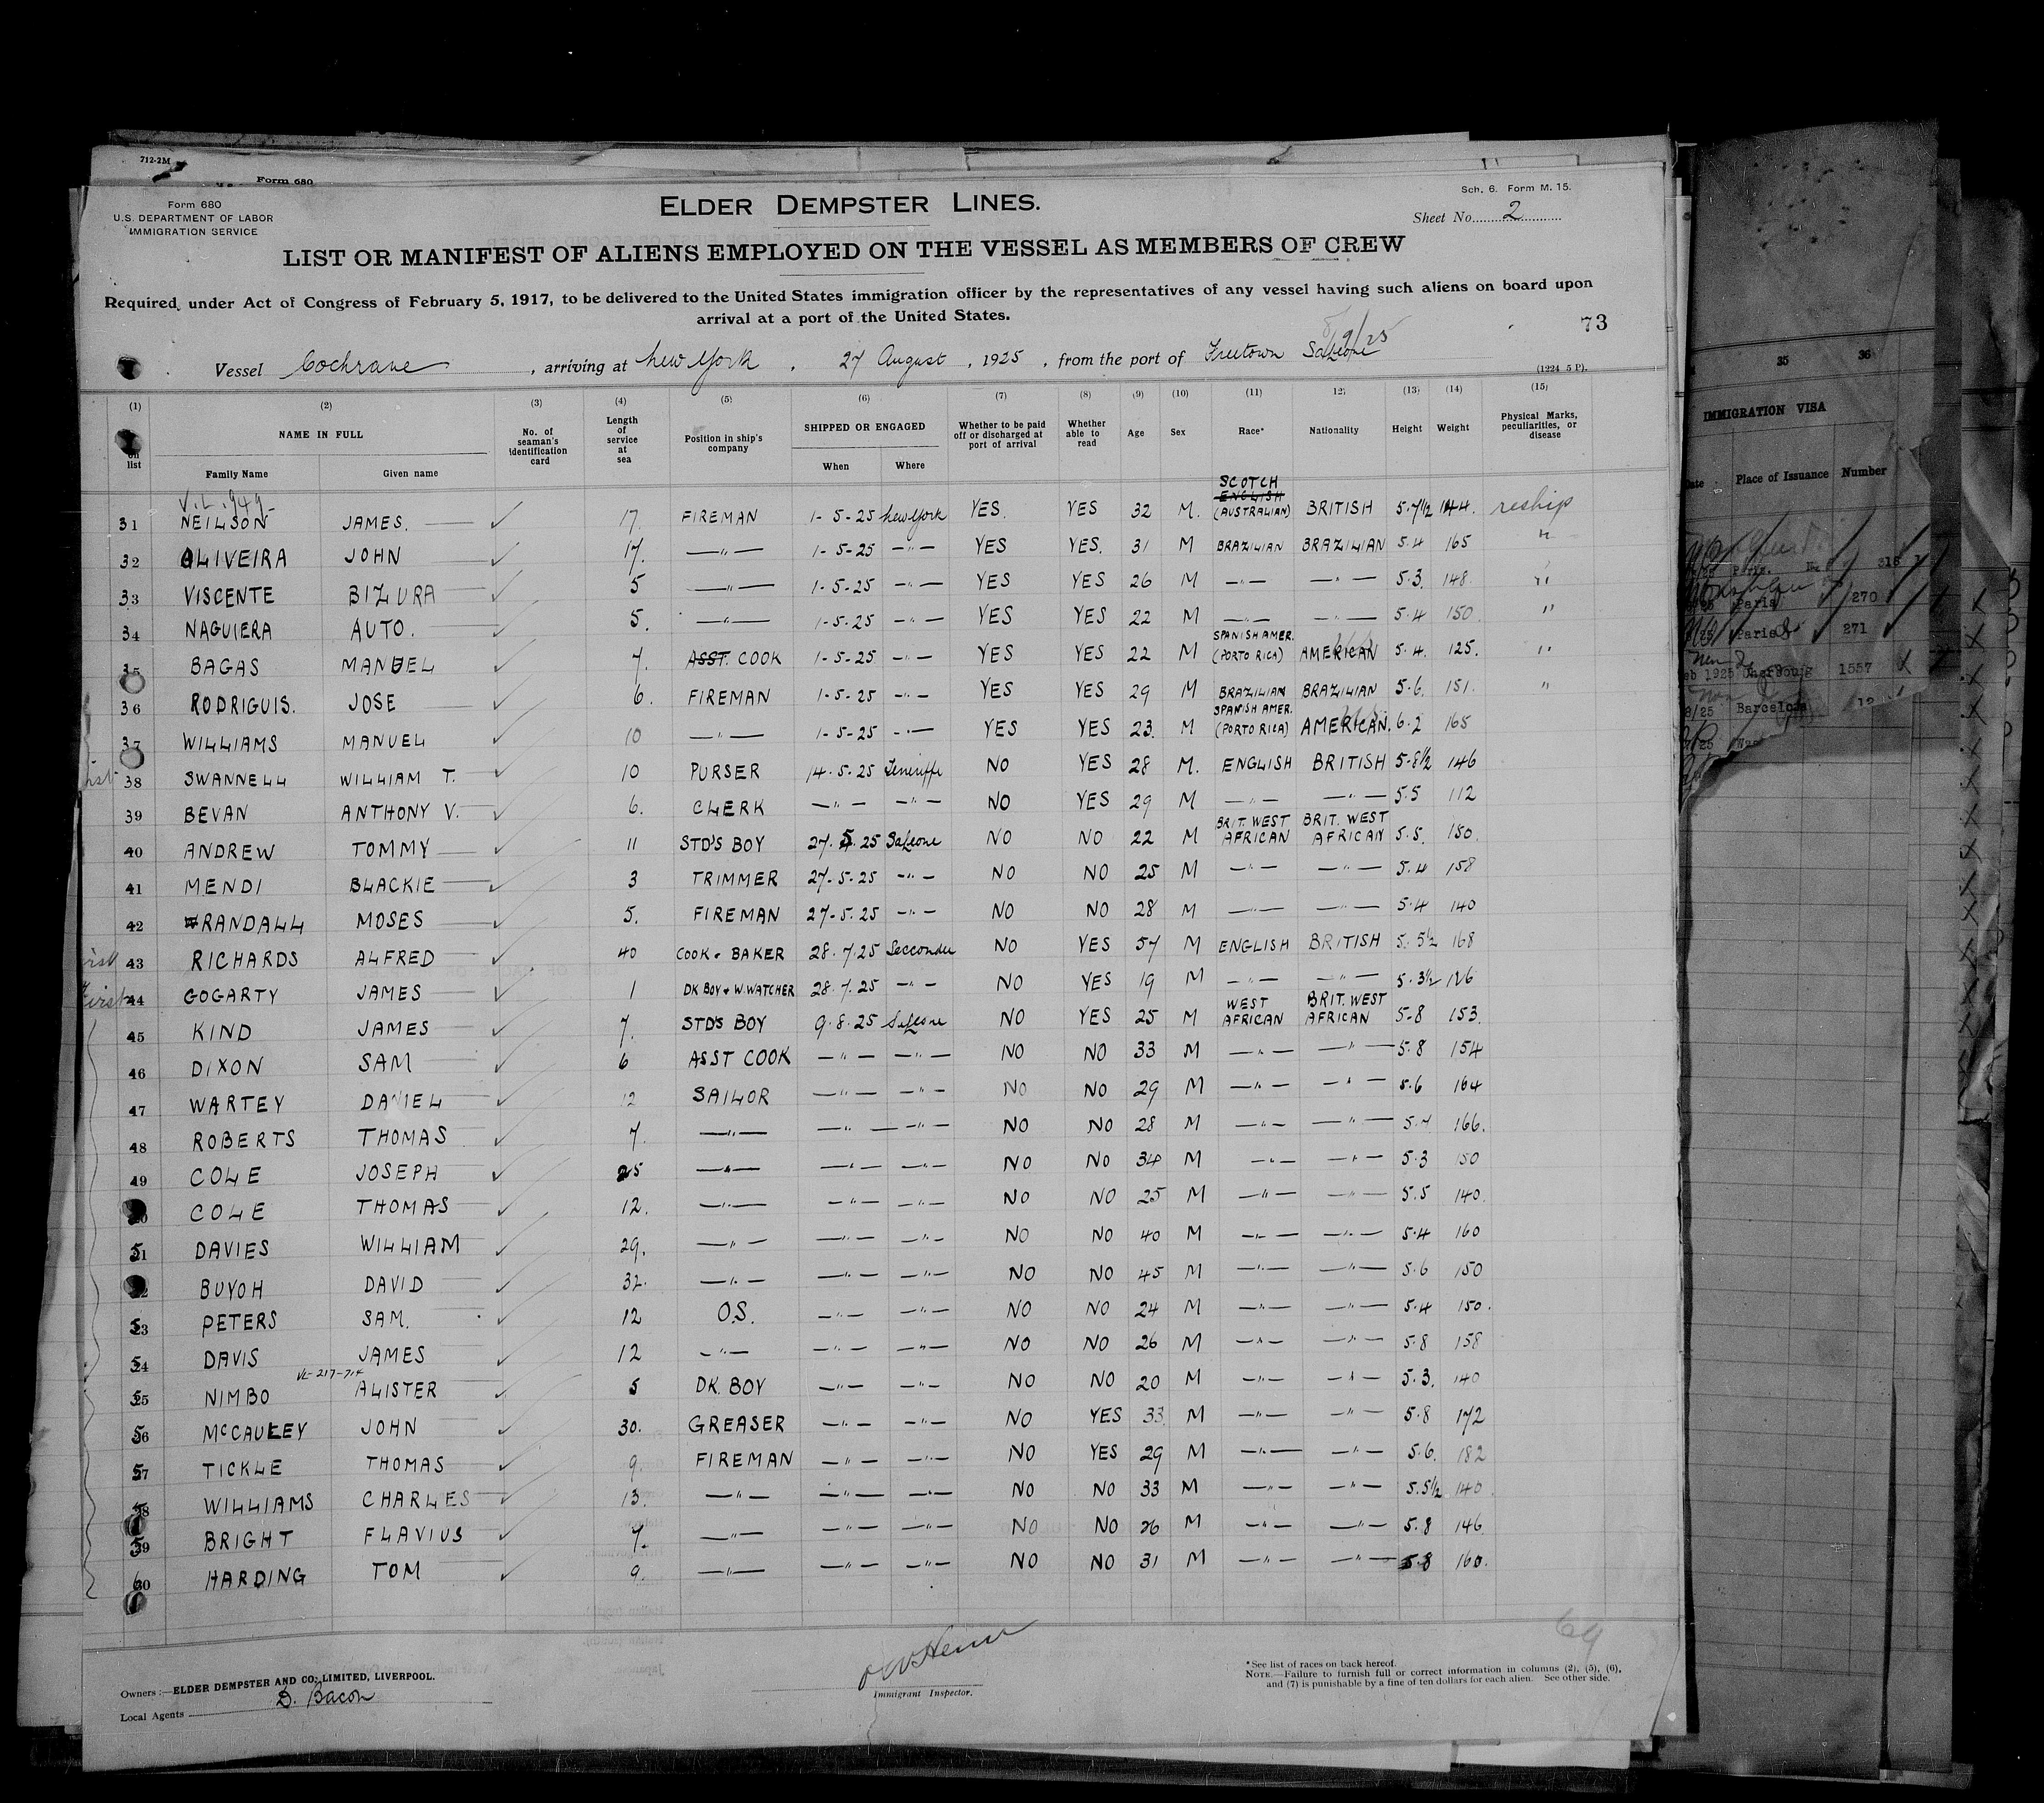 712-2M
Form 680
Form 680
U.S. DEPARTMENT OF LABOR
IMMIGRATION SERVICE
ELDER DEMPSTER LINES.
Sch. 6. Form M. 15.
Sheet No. 2
LIST OR MANIFEST OF ALIENS EMPLOYED ON THE VESSEL AS MEMBERS OF CREW
Required under Act of Congress of February 5, 1917, to be delivered to the United States immigration officer by the representatives of any vessel having such aliens on board upon
arrival at a port of the United States.
73
Vessel Cochrane, arriving at New York, 27 August, 1925, from the port of Freetown SaLeone
(1224 5 P).
(1) (2) (3) (4) (5) (6) (7) (8) (9) (10) (11) 12) (13) (14) (15)
on list
NAME IN FULL
Family Name Given name
No. of seaman's identification card
Length of service at sea
Position in ship's company
SHIPPED OR ENGAGED
When Where
Whether to be paid off or discharged at port of arrival
Whether able to read
Age Sex Race* Nationality Height Weight
Physical Marks, peculiarities, or disease
V.L. 949
31 NEILSON JAMES. 17. FIREMAN 1-5-25 New York YES. YES 32 M. SCOTCH ENGLISH (AUSTRALIAN) BRITISH 5.7½ 144. reship
32 OLIVEIRA JOHN 17. —"— 1-5-25 —"— YES YES. 31 M BRAZILIAN BRAZILIAN 5.4 165 "
33 VISCENTE BIZURA 5 —"— 1-5-25 —"— YES YES 26 M —"— —"— 5.3. 148. "
34 NAGUIERA AUTO. 5. —"— 1-5-25 —"— YES YES 22 M —"— —"— 5.4 150 "
35 BAGAS MANUEL 7. ASST. COOK 1-5-25 —"— YES YES 22 M SPANISH AMER. (PORTO RICA) AMERICAN 5.4. 125. "
36 RODRIGUIS. JOSE 6. FIREMAN 1-5-25 —"— YES YES 29 M BRAZILIAN BRAZILIAN 5.6. 151. "
37 WILLIAMS MANUEL 10 —"— 1-5-25 —"— YES YES 23. M SPANISH AMER. (PORTO RICA) AMERICAN. 6.2 165
38 SWANNELL WILLIAM T. 10 PURSER 14.5.25 Teneriffe NO YES 28 M. ENGLISH BRITISH 5-8½ 146
39 BEVAN ANTHONY V. 6. CLERK —"— —"— NO YES 29 M —"— —"— 5.5 112
40 ANDREW TOMMY 11 STD'S BOY 27.5.25 SaLeone NO NO 22 M BRIT. WEST AFRICAN BRIT. WEST AFRICAN 5.5. 150.
41 MENDI BLACKIE 3 TRIMMER 27-5-25 —"— NO NO 25 M —"— —"— 5.4 158
42 RANDALL MOSES 5. FIREMAN 27-5.25 —"— NO NO 28 M —"— —"— 5.4 140
43 RICHARDS ALFRED 40 COOK & BAKER 28.7.25 Secconder NO YES 57 M ENGLISH BRITISH 5.5½ 168
First 44 GOGARTY JAMES 1 DK BOY & W.WATCHER 28.7.25 —"— NO YES 19 M —"— —"— 5.3½ 126
45 KIND JAMES 7. STD'S BOY 9.8.25 SaLeone NO YES 25 M WEST AFRICAN BRIT. WEST AFRICAN 5-8 153.
46 DIXON SAM 6 ASST COOK —"— —"— NO NO 33 M —"— —"— 5.8 154
47 WARTEY DANIEL 12 SAILOR —"— —"— NO NO 29 M —"— —"— 5.6 164
48 ROBERTS THOMAS 7. —"— —"— —"— NO NO 28 M —"— —"— 166.
49 COLE JOSEPH 25 —"— —"— —"— NO NO 34 M —"— —"— 5.3 150
COLE THOMAS 12. —"— —"— —"— NO NO 25 M —"— —"— 5.5 140.
51 DAVIES WILLIAM 29. —"— —"— —"— NO NO 40 M —"— —"— 5.4 160
BUYOH DAVID 32. —"— —"— —"— NO NO 45 M —"— —"— 5.6 150
53 PETERS SAM. 12 O.S. —"— —"— NO NO 24 M —"— —"— 5.4 150.
54 DAVIS JAMES 12 —"— —"— —"— NO NO 26 M —"— —"— 5.8 158
VL-217-714
55 NIMBO ALISTER 5 DK. BOY —"— —"— NO NO 20 M —"— —"— 5.3. 140
56 McCAULEY JOHN 30. GREASER —"— —"— NO YES 33. M —"— —"— 5.8 172
57 TICKLE THOMAS 9. FIREMAN —"— —"— NO YES 29 M —"— —"— 5.6. 182
58 WILLIAMS CHARLES 13. —"— —"— —"— NO NO 33 M —"— —"— 5.5½ 140.
59 BRIGHT FLAVIUS 7. —"— —"— —"— NO NO 26 M —"— —"— 5.8 146
60 HARDING TOM 9. —"— —"— —"— NO NO 31 M —"— —"— 5.8 160.
69
Owners:—ELDER DEMPSTER AND CO; LIMITED, LIVERPOOL.
Local Agents D. Bacon
Immigrant Inspector.
*See list of races on back hereof.
NOTE.—Failure to furnish full or correct information in columns (2), (5), (6),
and (7) is punishable by a fine of ten dollars for each alien. See other side.
35 36
IMMIGRATION VISA
Date Place of Issuance Number
Paris. 318
Paris 270
Paris 271
Feb 1925 Cherbourg 1557
Barcelona